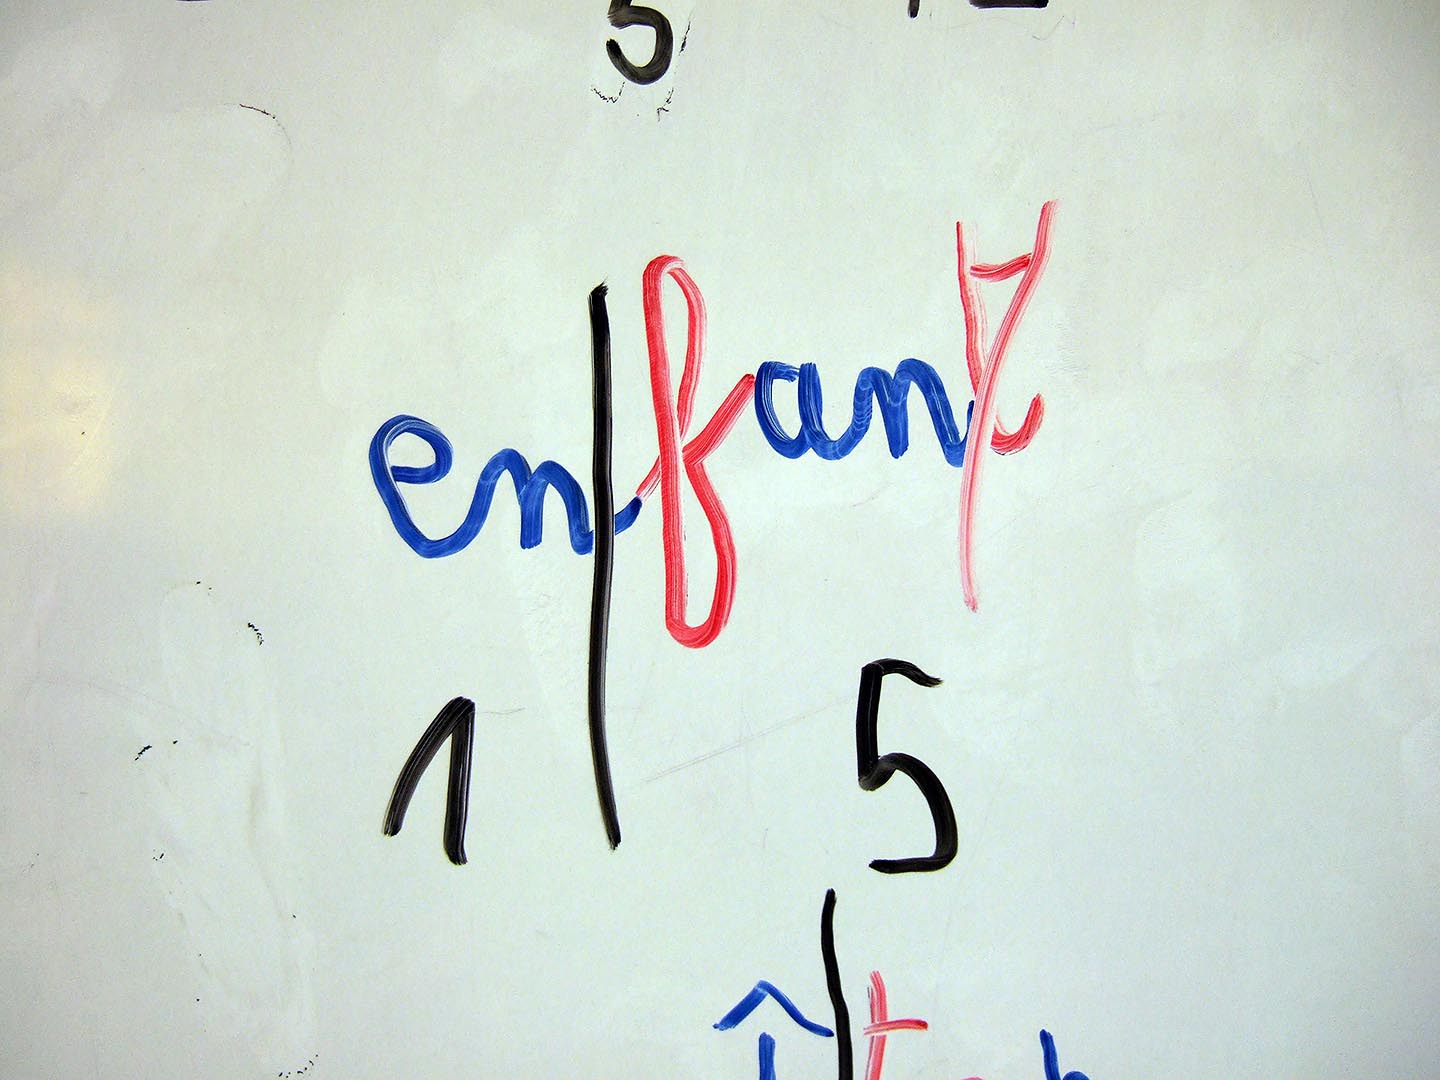 5
en|fant
1 5